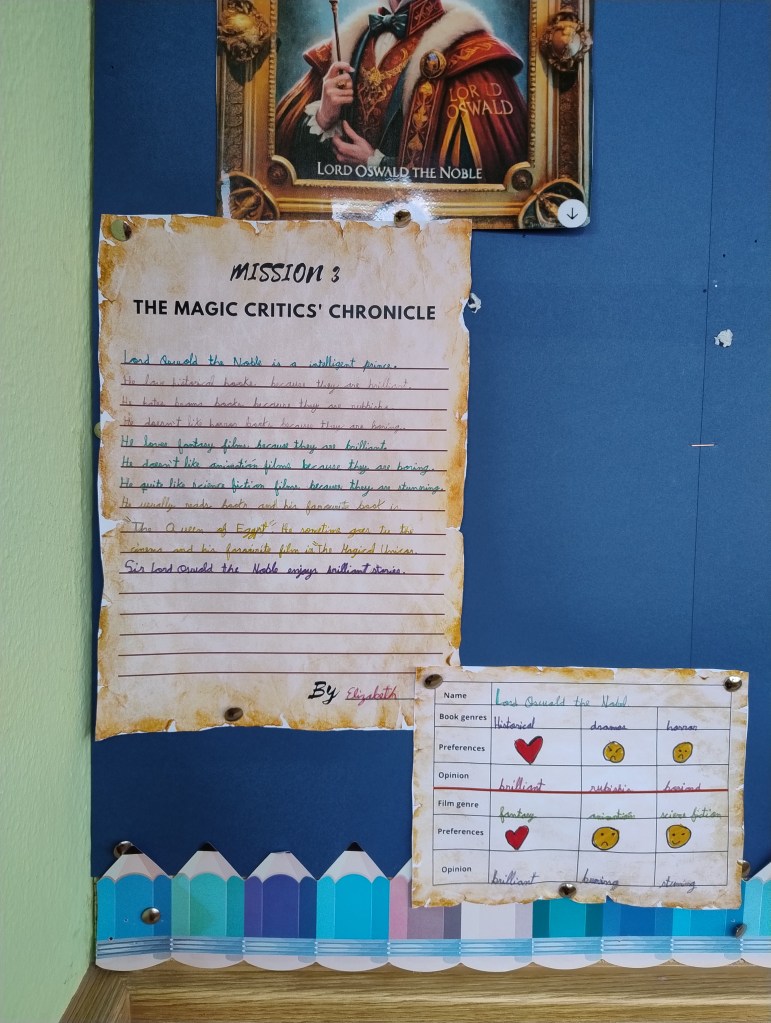 LORD OSWALD
LORD OSWALD THE NOBLE
MISSION 3
THE MAGIC CRITICS' CHRONICLE
Lord Oswald the Noble is a intelligent prince.
He lovs historical books, because they are brilliant.
He hates books because they are rubbish.
He doesn't like horror book, because they are boring.
He loves fantasy films because they are brilliant.
He doesn't like animation films because they are boring.
He quite like science fiction films because they are stunning.
He usually reads books and his favourite book is
"The Queen of Egypt" He sometime goes to the
cinema and his favourite film is "The Magical Unicor
Sir Lord Oswald the Noble enjoys brilliant stories.
By Elizabeth
Name Lord Oswald the Nobel
Book genres Historical dramas horror
Preferences
Opinion brilliant
Film genre fantasy animation
Preferences
Opinion brilliant